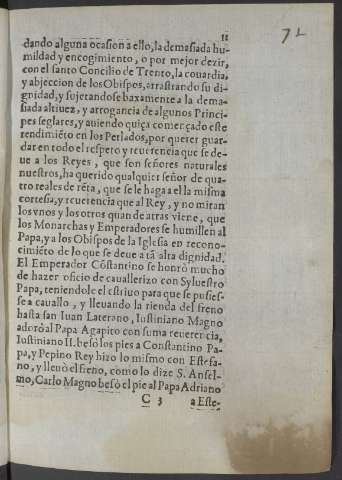 11
72
dando alguna ocasion a ello, la demasiada hu-
mildad y encogimiento, o por mejor dezir,
con el santo Concilio de Trento, la couardia,
y abjeccion de los Obispos, arrastrando su di-
gnidad, y sujetandose baxamente a la dema-
siada altiuez, y arrogancia de algunos Princi-
pes seglares, y auiendo quiça començado este
rendimiẽto en los Perlados, por querer guar-
dar en todo el respeto y reuerencia que se de-
ue a los Reyes, que son señores naturales
nuestros, ha querido qualquier señor de qua-
tro reales de rẽta, que se le haga a el la misma
cortesia, y reuerencia que al Rey, y no miran
los vnos y los otros quan de atras viene, que
los Monarchas y Emperadores se humillen al
Papa, y a los Obispos de la Iglesia en recono-
cimiẽto de lo que se deue a tã alta dignidad.
El Emperador Cõstantino se honrò mucho
de hazer oficio de cauallerizo con Syluestro
Papa, teniendole el estriuo para que se pusies-
se a cauallo, y lleuando la rienda del freno
hasta san Iuan Laterano, Iustiniano Magno
adorò al Papa Agapito con suma reuerencia,
Iustiniano II. besò los pies a Constantino Pa-
pa, y Pepino Rey hizo lo mismo con Estefa-
no, y lleuò el freno, como lo dize S. Ansel-
mo, Carlo Magno besò el pie al Papa Adriano
C 3 a Este-